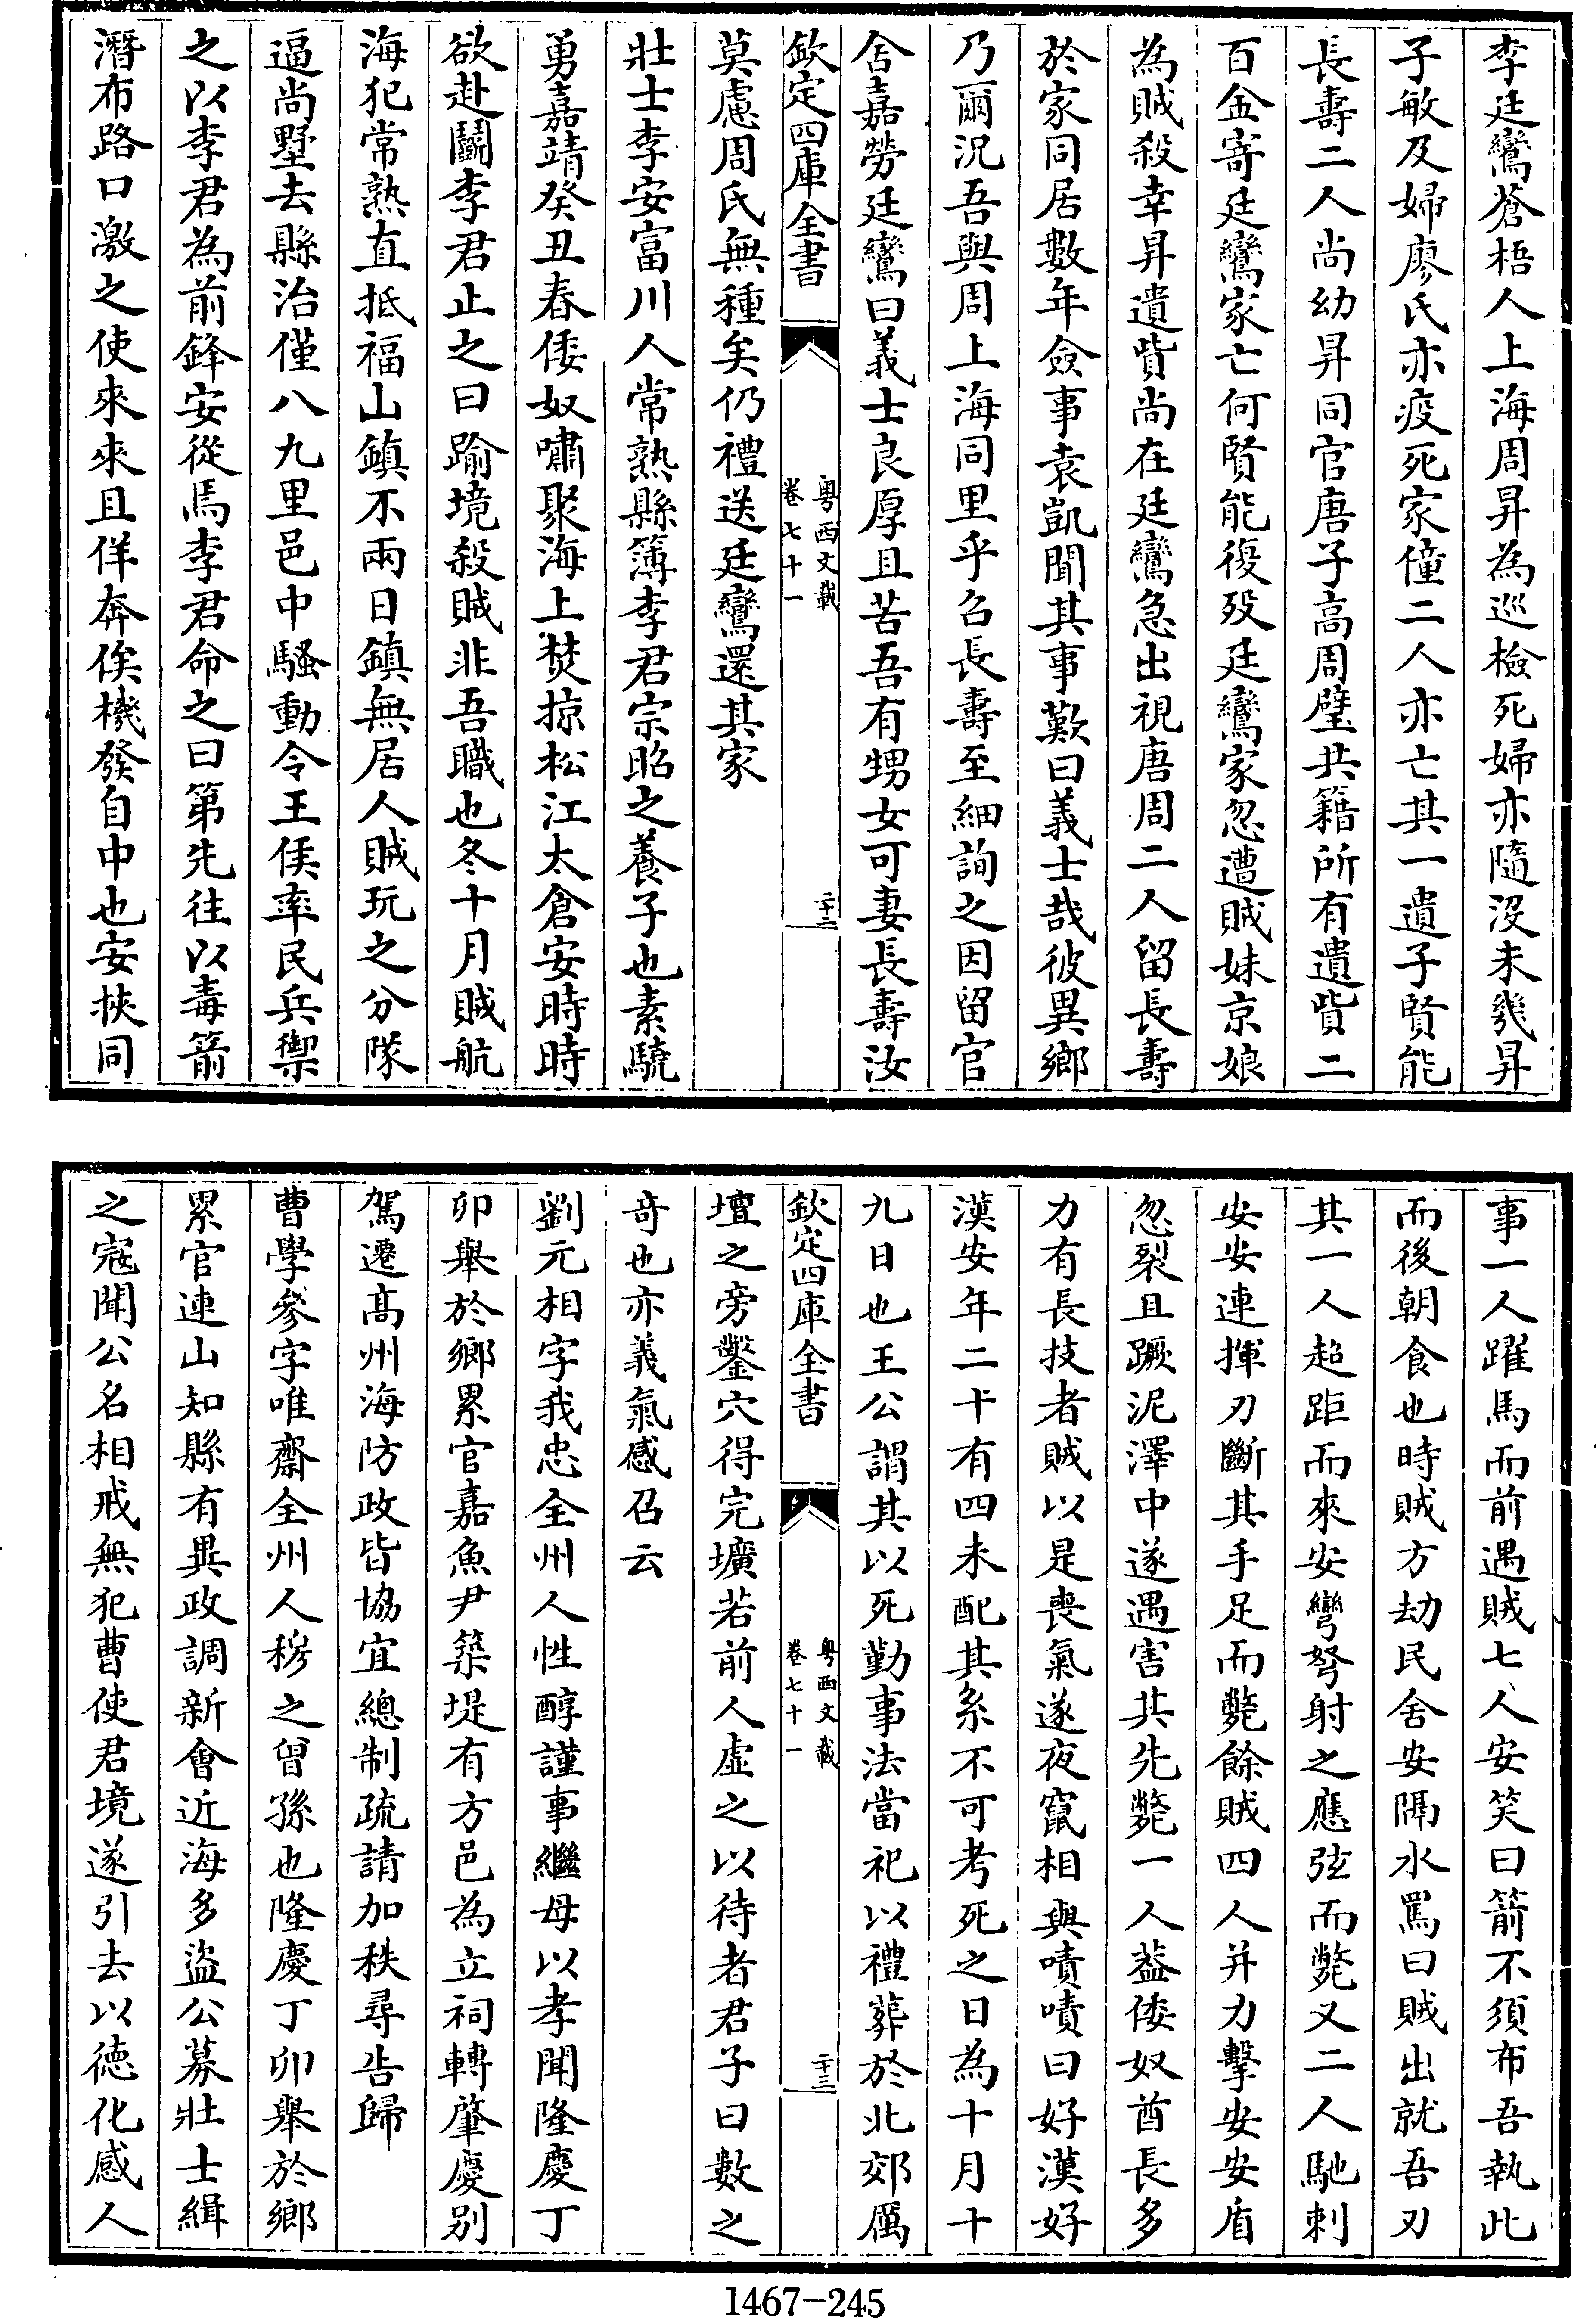 李廷鸞蒼梧人上海周昇為巡檢死婦亦隨沒未幾昇
子敏及婦廖氏亦疫死家僮二人亦亡其一遺子賢能
長壽二人尚幼昇同官唐子高周璧共籍所有遺貲二
百金寄廷鸞家亡何賢能復歿廷鸞家忽遭賊妹京娘
為賊殺幸昇遺貲尚在廷鸞急出視唐周二人留長壽
於家同居數年僉事袁凱聞其事歎曰義士哉彼異鄉
乃爾況吾與周上海同里乎召長壽至細詢之因留官
舍嘉勞廷鸞曰義士良厚且苦吾有甥女可妻長壽汝
欽定四庫全書
粵西文載
卷七十一
二十二
莫慮周氏無種矣仍禮送廷鸞還其家
壯士李安富川人常熟縣簿李君宗昭之養子也素驍
勇嘉靖癸丑春倭奴嘯聚海上焚掠松江太倉安時時
欲赴鬭李君止之曰踰境殺賊非吾職也冬十月賊航
海犯常熟直抵福山鎮不兩日鎮無居人賊玩之分隊
逼尚墅去縣治僅八九里邑中騷動令王侯率民兵禦
之以李君為前鋒安從焉李君命之曰第先往以毒箭
潛布路口激之使來來且佯奔俟機發自中也安挾同
事一人躍馬而前遇賊七人安笑曰箭不須布吾執此
而後朝食也時賊方劫民舍安隔水罵曰賊出就吾刃
其一人超距而來安彎弩射之應弦而斃又二人馳刺
安安連揮刃斷其手足而斃餘賊四人并力擊安安盾
忽裂且蹶泥澤中遂遇害其先斃一人葢倭奴酋長多
力有長技者賊以是喪氣遂夜竄相與嘖嘖曰好漢好
漢安年二十有四未配其系不可考死之日為十月十
九日也王公謂其以死勤事法當祀以禮葬於北郊厲
欽定四庫全書
粵西文載
卷七十一
二十三
壇之旁鑿穴得完壙若前人虛之以待者君子曰數之
奇也亦義氣感召云
劉元相字我忠全州人性醇謹事繼母以孝聞隆慶丁
卯舉於鄉累官嘉魚尹築堤有方邑為立祠轉肇慶別
駕遷高州海防政皆協宜總制疏請加秩尋告歸
曹學參字唯齋全州人穆之曾孫也隆慶丁卯舉於鄉
累官連山知縣有異政調新會近海多盜公募壯士緝
之寇聞公名相戒無犯曹使君境遂引去以德化感人
1467-245